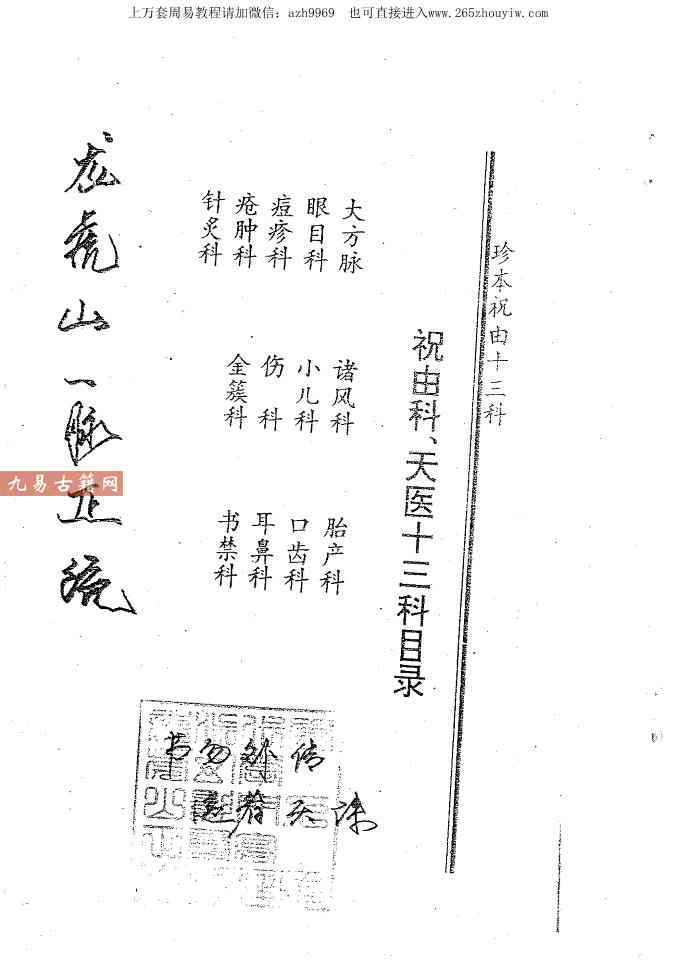 上万套周易教程请加微信：azh9969　也可直接进入www.265zhouyiw.com
珍本祝由十三科
祝由科、天医十三科目录
大方脉
诸风科
胎产科
眼目科
小儿科
口齿科
痘疹科
伤科
耳鼻科
疮肿科
金簇科
书禁科
针炙科
龙虎山一脉正统
书勿外传
违者天诛
九易古籍网